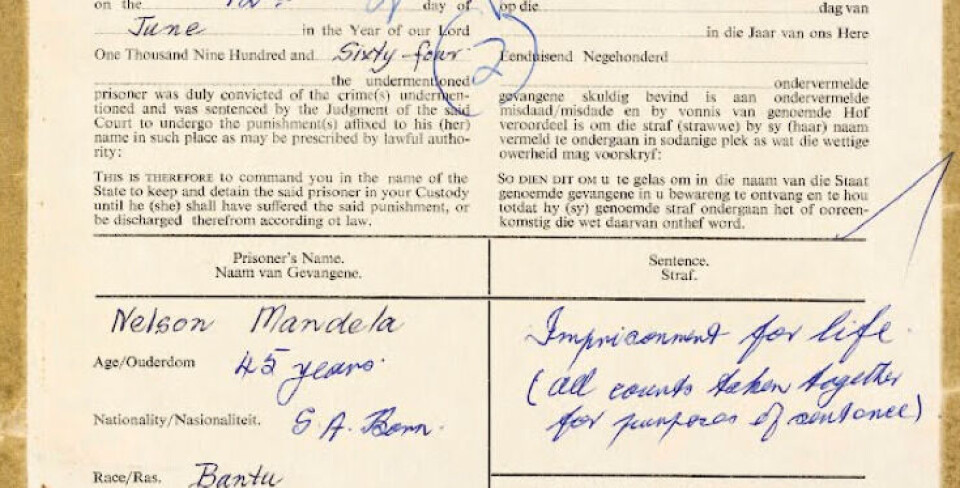 on the 12th day of
June in the Year of our Lord
One Thousand Nine Hundred and Sixty-four
the undermentioned
prisoner was duly convicted of the crime(s) undermen-
tioned and was sentenced by the Judgment of the said
Court to undergo the punishment(s) affixed to his (her)
name in such place as may be prescribed by lawful autho-
rity:
THIS IS THEREFORE to command you in the name of the
State to keep and detain the said prisoner in your Custody
until he (she) shall have suffered the said punishment, or
be discharged therefrom according ot law.
op die dag van
in die Jaar van ons Here
Eenduisend Negehonderd
2
ondervermelde
gevangene skuldig bevind is aan ondervermelde
misdaad/misdade en by vonnis van genoemde Hof
veroordeel is om die straf (strawwe) by sy (haar) naam
vermeld te ondergaan in sodanige plek as wat die wettige
owerheid mag voorskryf:
SO DIEN DIT OM u te gelas om in die naam van die Staat
genoemde gevangene in u bewareng te ontvang en te hou
totdat hy (sy) genoemde straf ondergaan het of ooreen-
komstig die wet daarvan onthef word.
Prisoner's Name.
Naam van Gevangene.
Sentence.
Straf.
Nelson Mandela
Age/Ouderdom 45 years.
Nationality/Nasionaliteit. S.A. Born.
Race/Ras. Bantu
Imprisonment for life.
(all counts taken together
for purposes of sentence)